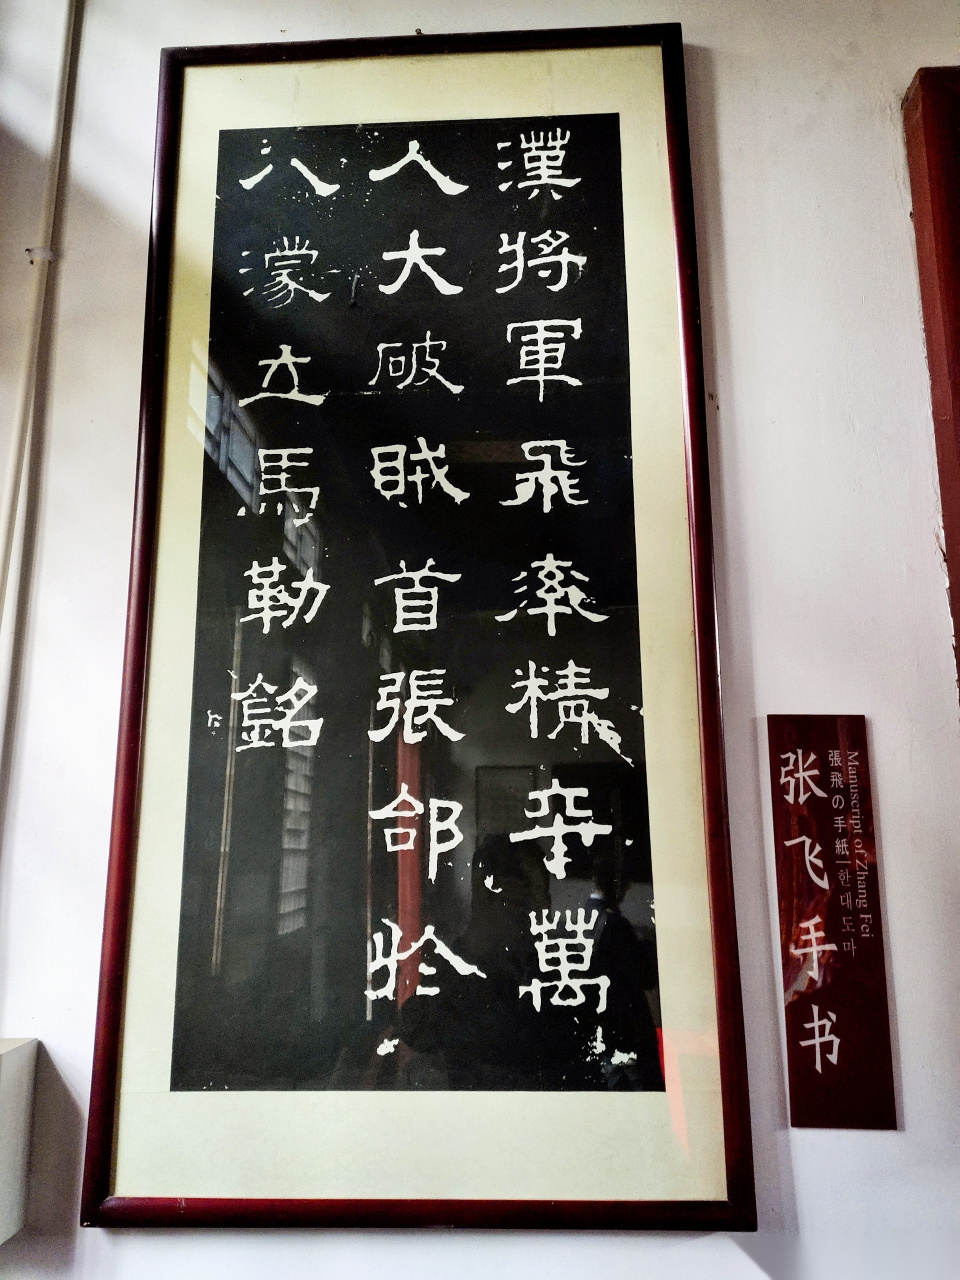 漢將軍飛率精卒萬
人大破賊首張郃於
八濛立馬勒銘
Manuscript of Zhang Fei
張飛の手紙|한대도마
张飞手书